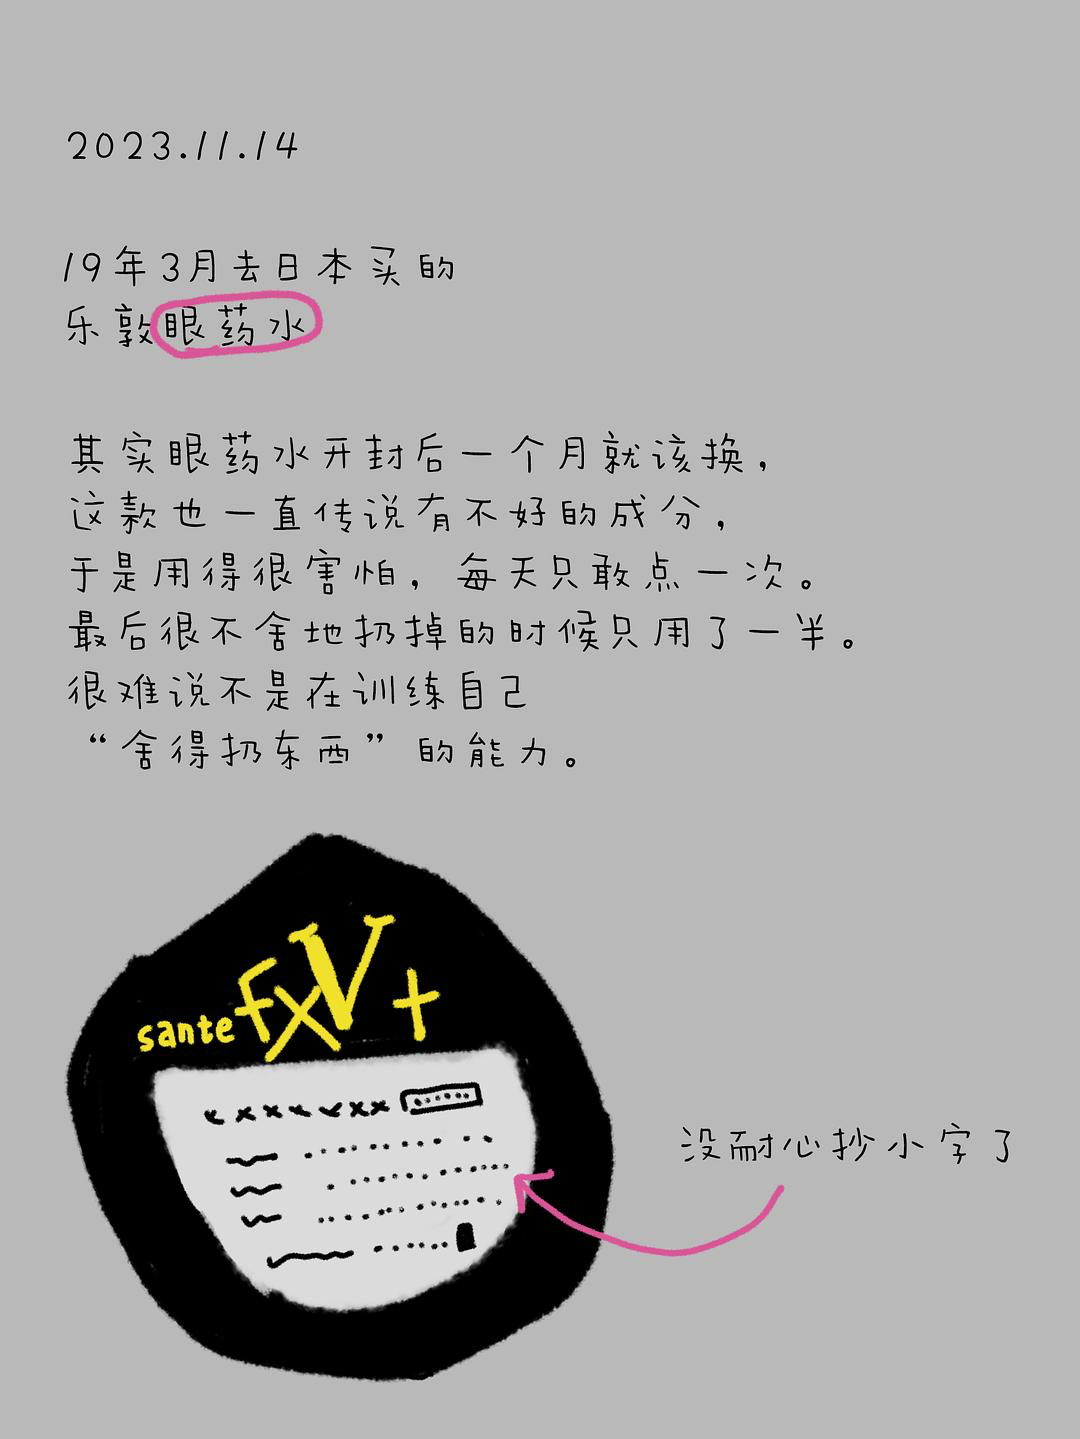 2023.11.14
19年3月去日本买的
乐敦眼药水
其实眼药水开封后一个月就该换，
这款也一直传说有不好的成分，
于是用得很害怕，每天只敢点一次。
最后很不舍地扔掉的时候只用了一半。
很难说不是在训练自己
“舍得扔东西”的能力。
sante FX V+
没耐心抄小字了